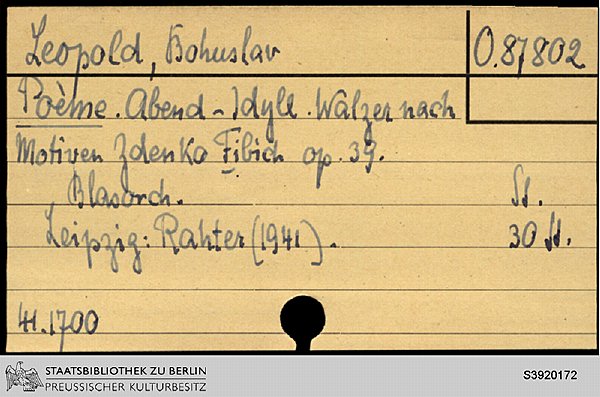 Leopold, Bohuslav
O.87802
Poème. Abend-Idyll. Walzer nach
Motiven Zdenko Fibich op. 39.
Blasorch. St.
Leipzig: Rahter (1941). 30 St.
41.1700
STAATSBIBLIOTHEK ZU BERLIN
PREUSSISCHER KULTURBESITZ
S3920172